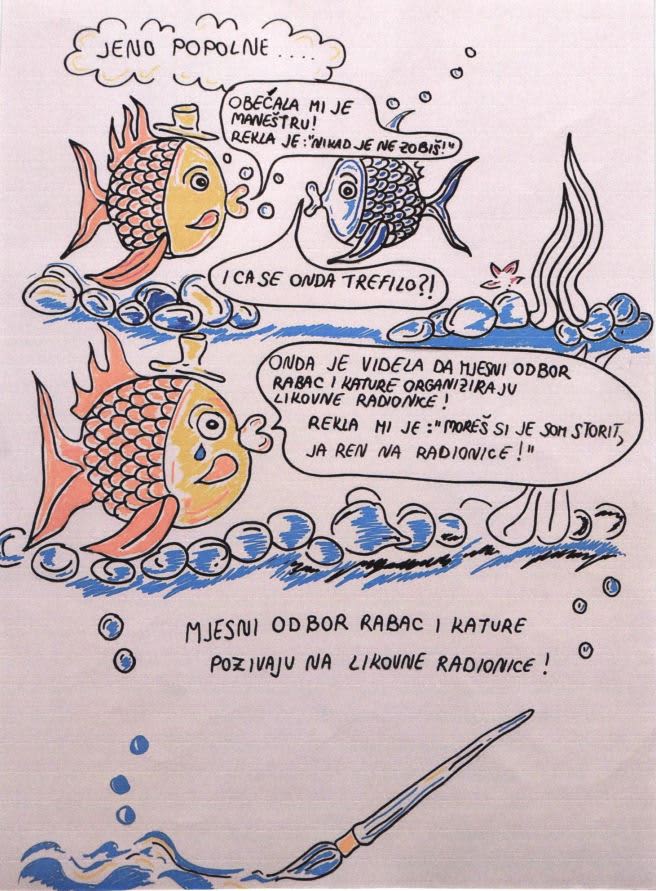 JENO POPOLNE ....
OBEĆALA MI JE
MANEŠTRU!
REKLA JE:"NIKAD JE NE ZOBIŠ!"
I CA SE ONDA TREFILO?!
ONDA JE VIDELA DA MJESNI ODBOR
RABAC I KATURE ORGANIZIRAJU
LIKOVNE RADIONICE!
REKLA MI JE:"MOREŠ SI JE SOM STORIT,
JA REN NA RADIONICE!"
MJESNI ODBOR RABAC I KATURE
POZIVAJU NA LIKOVNE RADIONICE!